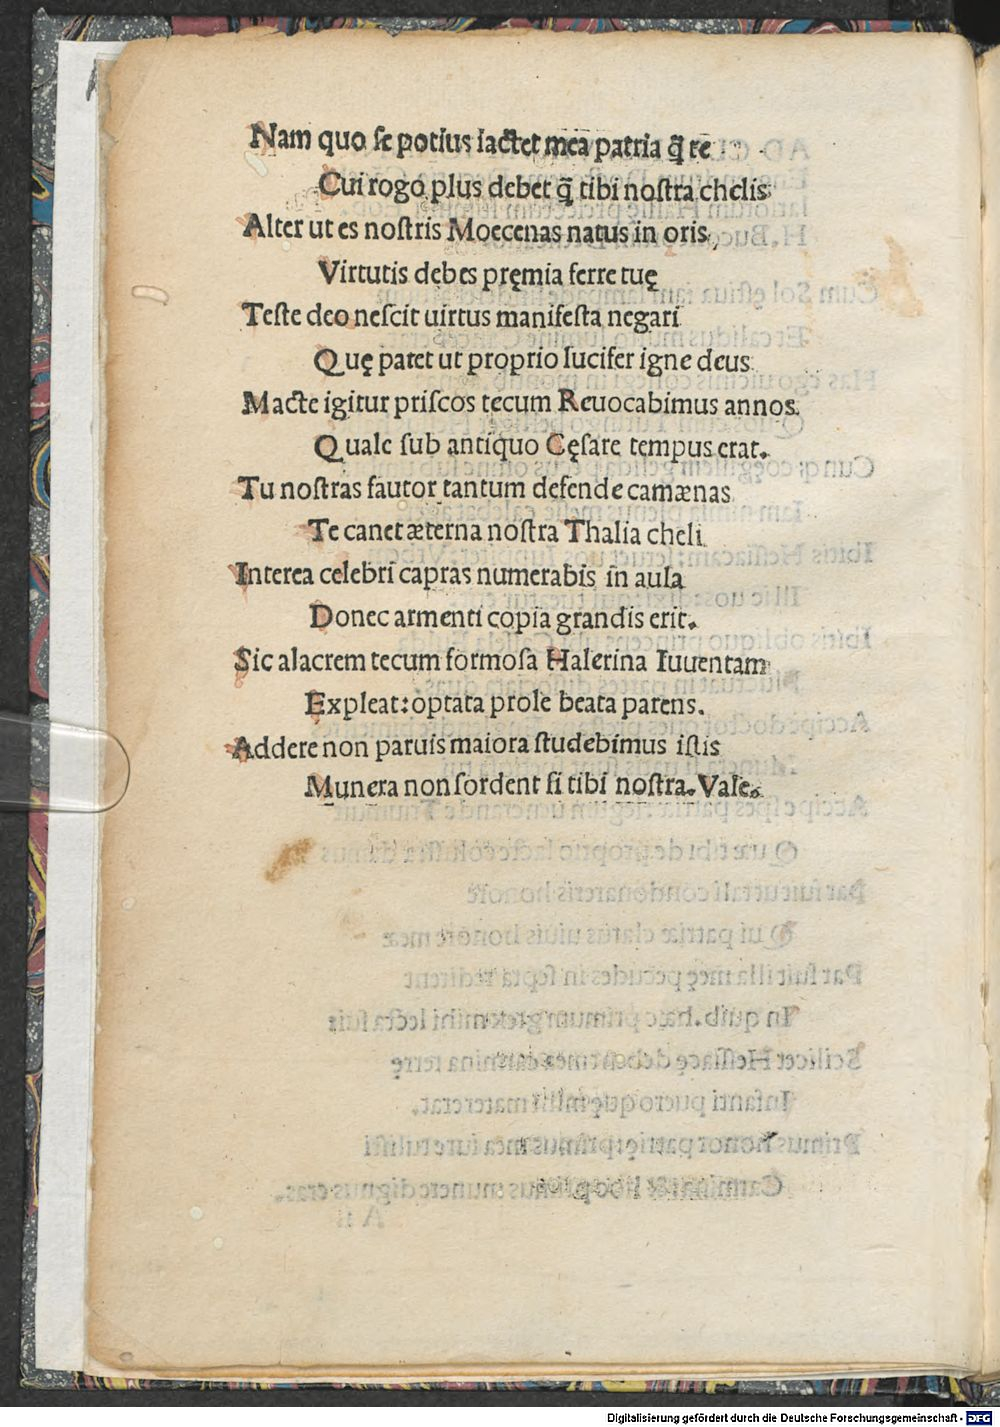 Nam quo se potius iactet mea patria q̃ te
Cui rogo plus debet q̃ tibi nostra chelis
Alter ut es nostris Moecenas natus in oris,
Virtutis debes pręmia ferre tuę
Teste deo nescit uirtus manifesta negari
Quę patet ut proprio lucifer igne deus
Macte igitur priscos tecum Reuocabimus annos
Quale sub antiquo Cęsare tempus erat.
Tu nostras fautor tantum defende camænas
Te canet æterna nostra Thalia cheli
Interea celebri capras numerabis in aula
Donec armenti copia grandis erit.
Sic alacrem tecum formosa Halerina Iuuentam
Expleat: optata prole beata parens.
Addere non paruis maiora studebimus istis
Munera non sordent si tibi nostra. Vale.
Digitalisierung gefördert durch die Deutsche Forschungsgemeinschaft - DFG